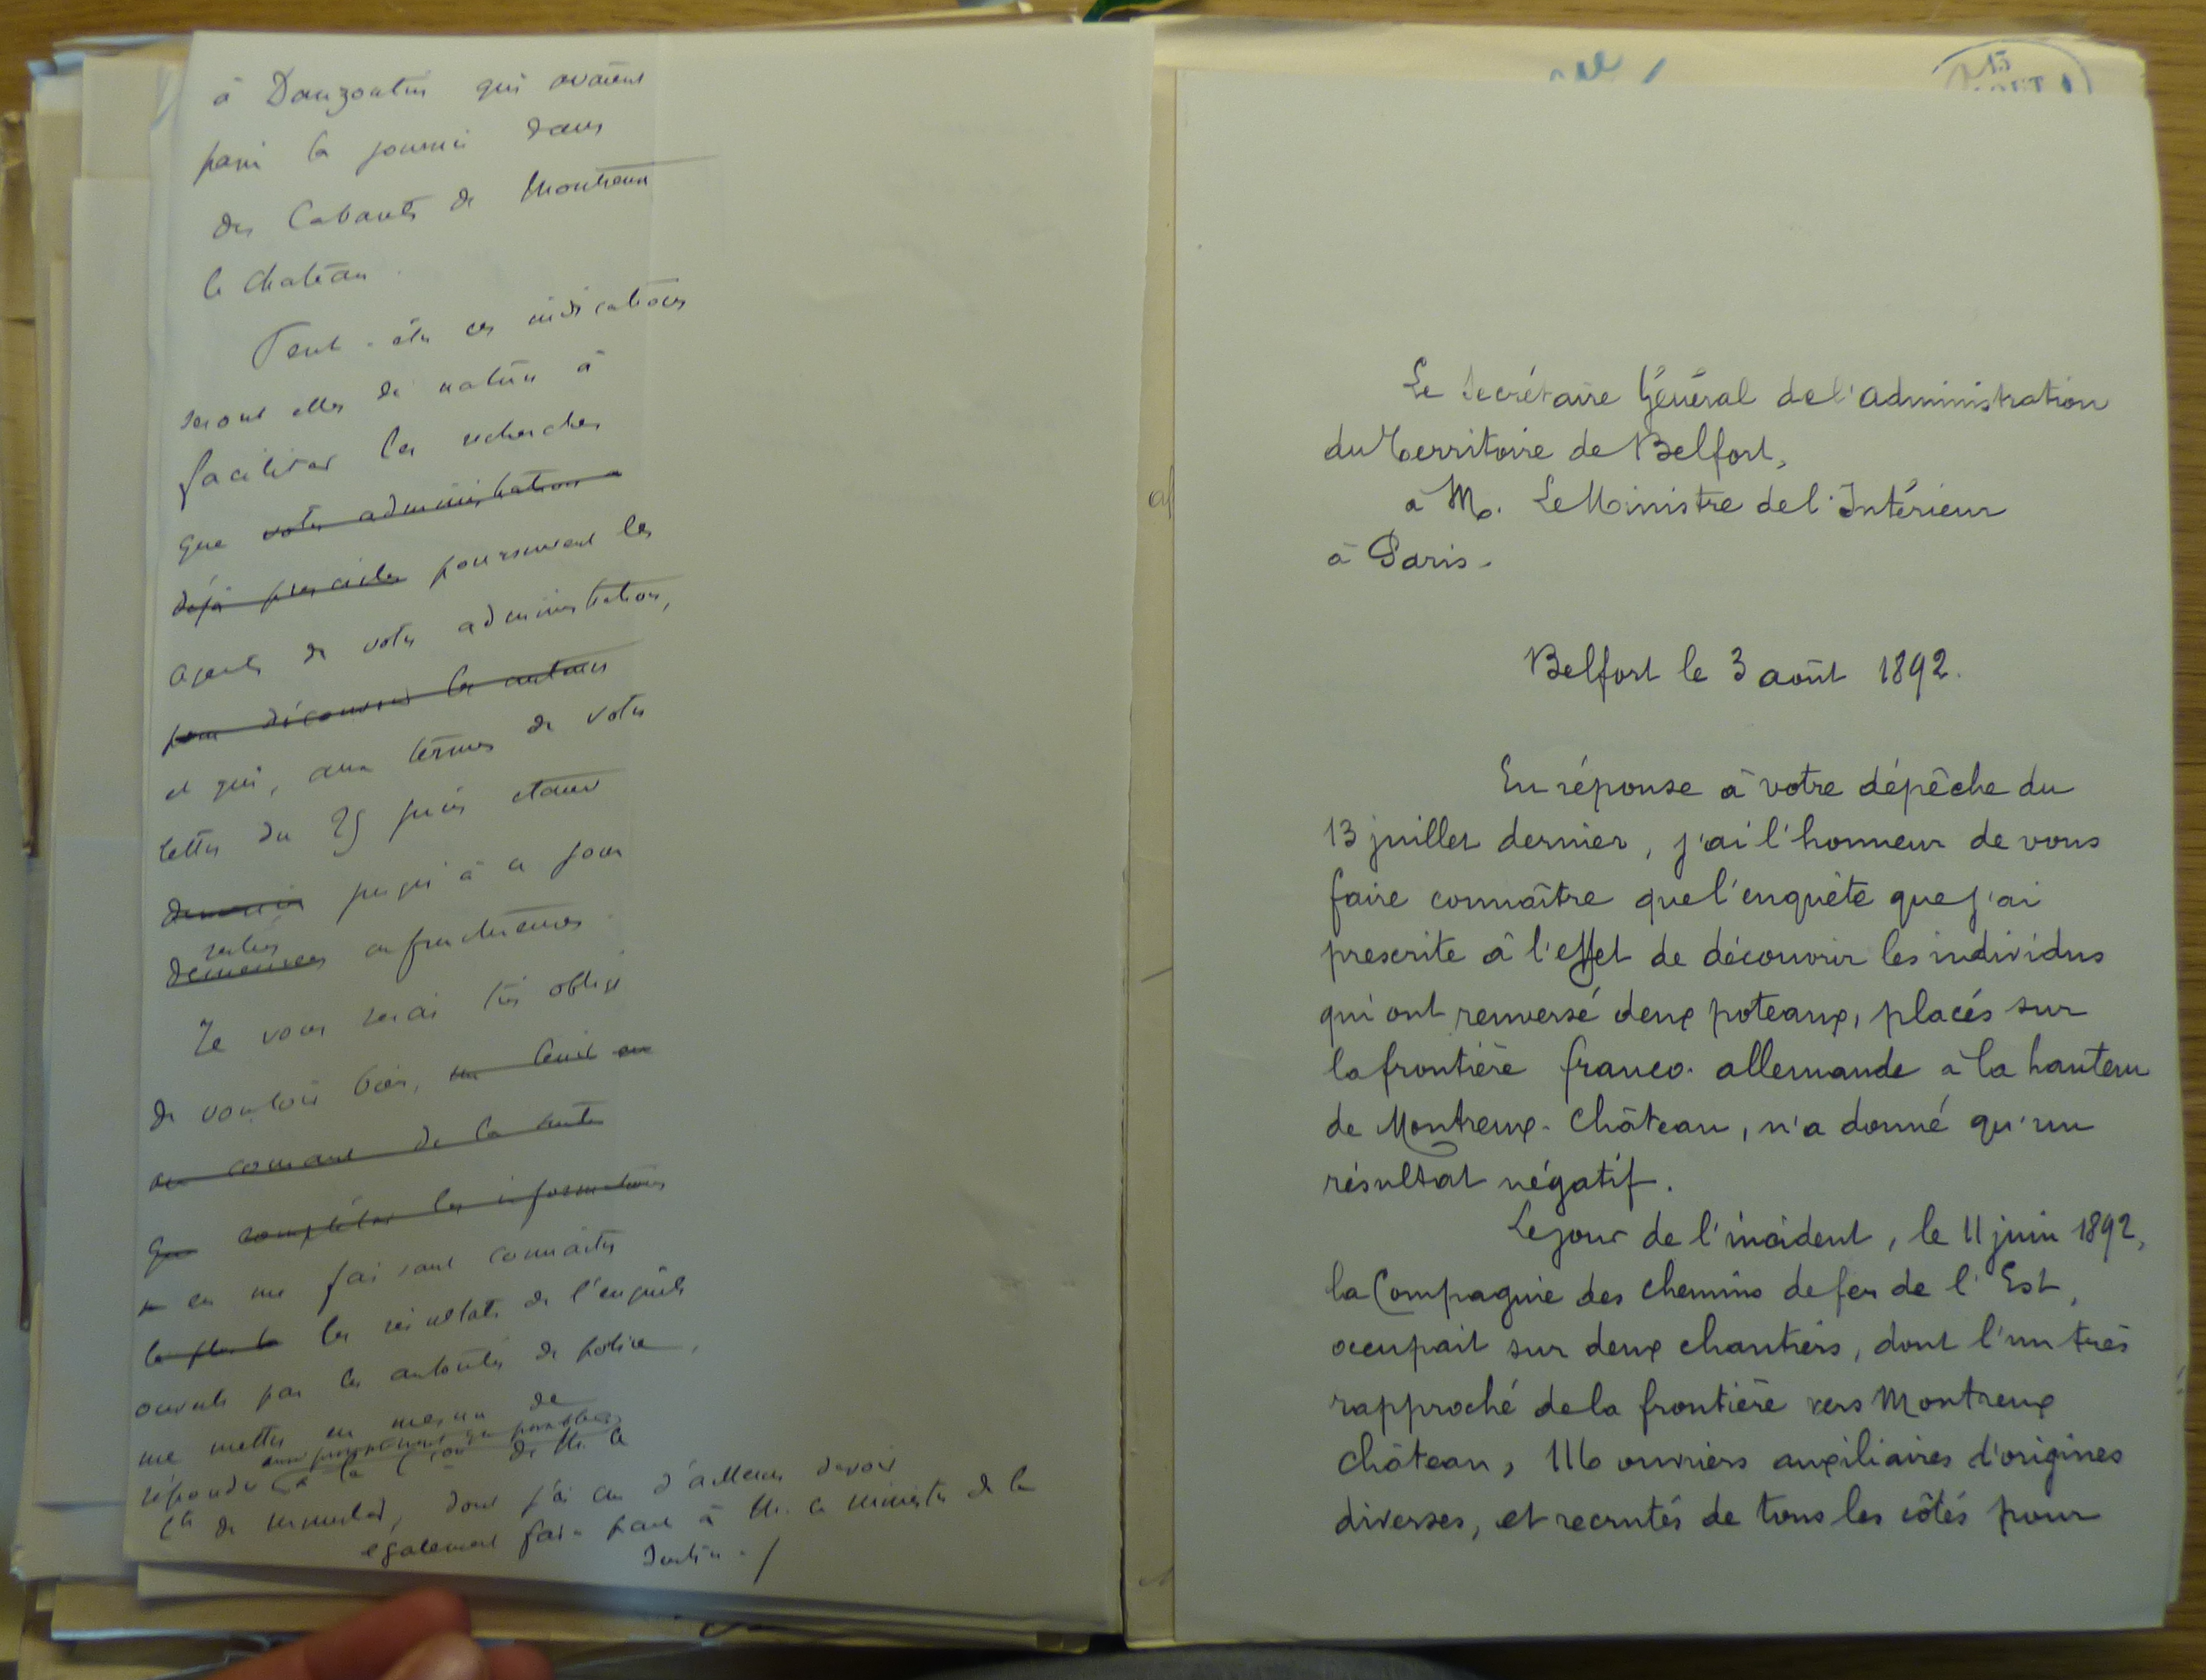 à Danjoutin qui avaient
passé la journée dans
des Cabarets de Montreux
le Chateau.
Peut-être ces indications
seront elles de nature à
faciliter les recherches
que votre administration a
déjà prescrites poursuivent les
agents de votre administration,
pour découvrir les auteurs
et qui, aux termes de votre
lettre du 25 juin étaient
jusqu'à ce jour
restées
demeurées infructueuses.
Je vous serai très obligé
de vouloir bien,
au courant de la suite
que compléter les informations
en me faisant connaître
les résultats de l'enquête
ouverte par les autorités de police,
me mettre en mesure de
aussi promptement que possible
répondre à la de M. le
Cte de Munster, dont j'ai cru d'ailleurs devoir
également faire part à M. le Ministre de la
Justice./
15
Le Secrétaire Général de l'administration
du Territoire de Belfort,
à M. Le Ministre de l'Intérieur
à Paris.
Belfort le 3 août 1892.
En réponse à votre dépêche du
13 juillet dernier, j'ai l'honneur de vous
faire connaître que l'enquête que j'ai
prescrite à l'effet de découvrir les individus
qui ont renversé deux poteaux, placés sur
la frontière franco-allemande à la hauteur
de Montreux-Château, n'a donné qu'un
résultat négatif.
Le jour de l'incident, le 11 juin 1892,
la Compagnie des chemins de fer de l'Est,
occupait sur deux chantiers, dont l'un très
rapproché de la frontière vers Montreux
Château, 116 ouvriers auxiliaires d'origines
diverses, et recrutés de tous les côtés pour